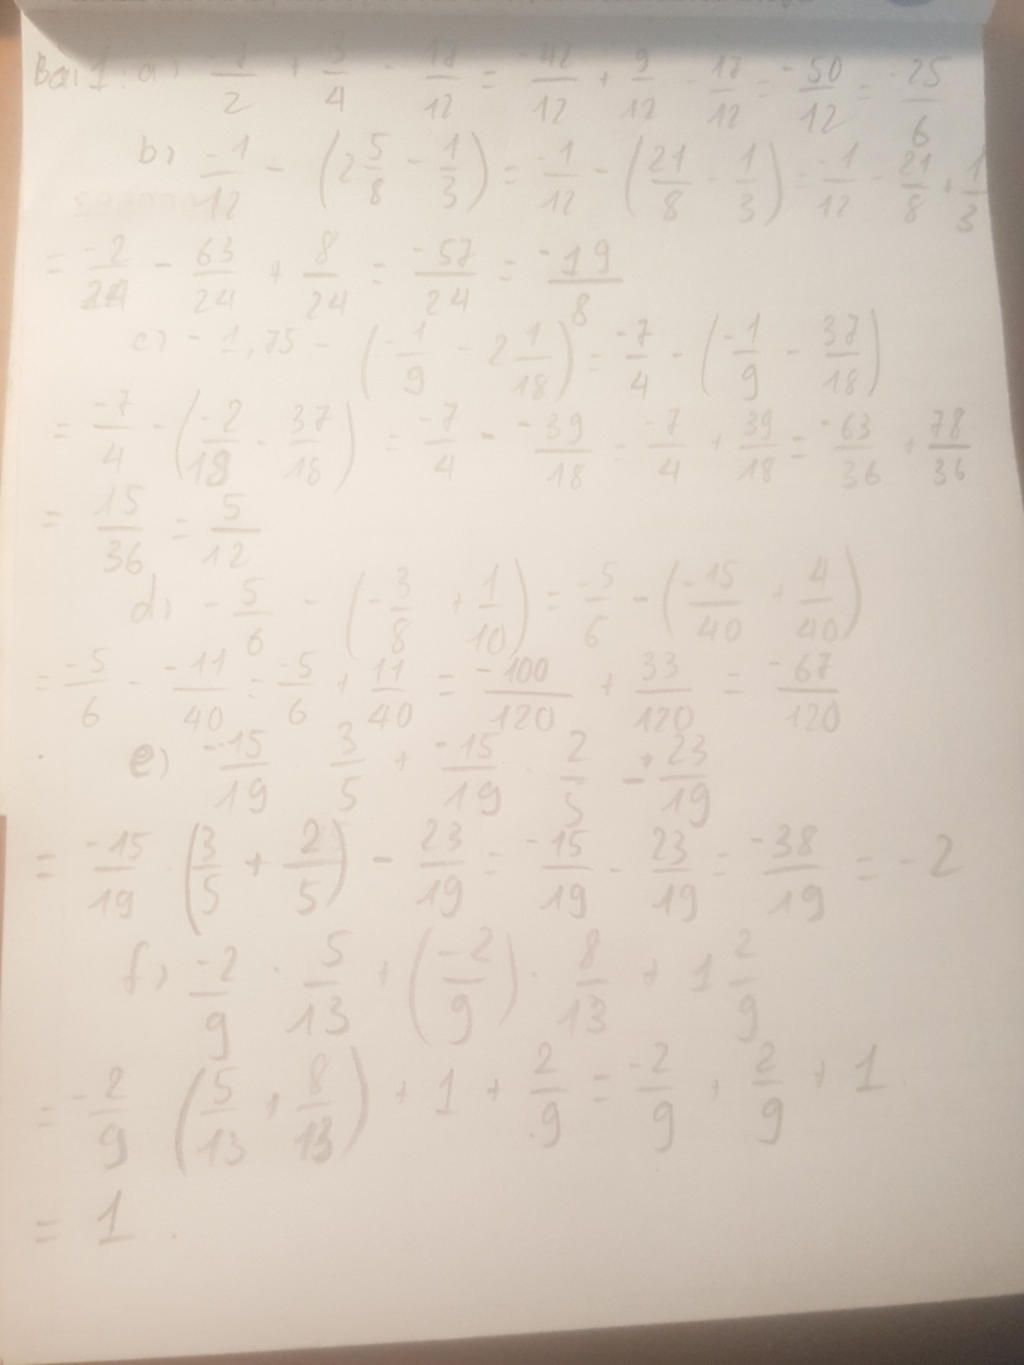 Bài 1: a) -7/2 + 3/4 - 17/12 = -42/12 + 9/12 - 17/12 = -50/12 = -25/6
b) -1/12 - (2 5/8 - 1/3) = -1/12 - (21/8 - 1/3) = -1/12 - 21/8 + 1/3
= -2/24 - 63/24 + 8/24 = -57/24 = -19/8
c) -1,75 - (-1/9 - 2 1/18) = -7/4 - (-1/9 - 37/18)
= -7/4 - (-2/18 - 37/18) = -7/4 - -39/18 = -7/4 + 39/18 = -63/36 + 78/36
= 15/36 = 5/12
d) -5/6 - (-3/8 + 1/10) = -5/6 - (-15/40 + 4/40)
= -5/6 - -11/40 = -5/6 + 11/40 = -100/120 + 33/120 = -67/120
e) -15/19 · 3/5 + -15/19 · 2/5 - 23/19
= -15/19 (3/5 + 2/5) - 23/19 = -15/19 - 23/19 = -38/19 = -2
f) -2/9 · 5/13 + (-2/9) · 8/13 + 1 2/9
= -2/9 (5/13 + 8/13) + 1 + 2/9 = -2/9 + 2/9 + 1
= 1.